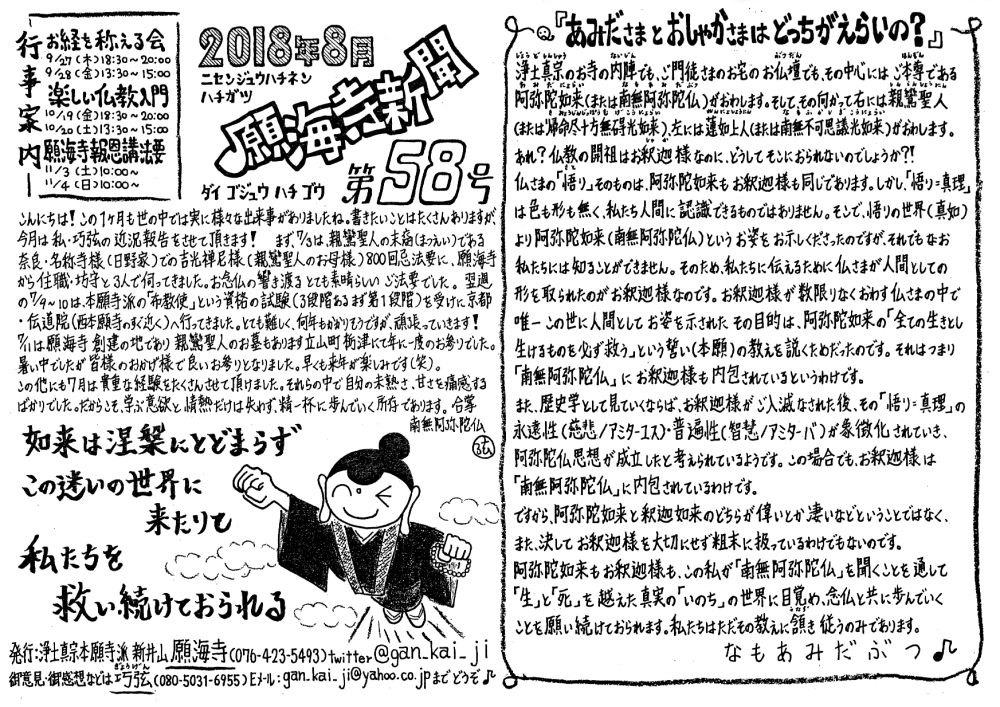 行事案内
お経を称える会
9/27(木)18:30~20:00
9/28(金)13:30~15:00
楽しい仏教入門
10/19(金)18:30~20:00
10/20(土)13:30~15:00
願海寺報恩講法要
11/3(土)10:00~
11/4(日)10:00~
2018年8月
ニセンジュウハチネン
ハチガツ
願海寺新聞
ダイ ゴジュウ ハチゴウ
第58号
こんにちは!この1ヶ月も世の中では実に様々な出来事がありましたね。書きたいことはたくさんありますが、
今月は私・巧弦の近況報告をさせて頂きます! まず、7/3は、親鸞聖人の末裔(まつえい)である
奈良・名称寺様(日野家)での吉光禅尼様(親鸞聖人のお母様)800回忌法要に、願海寺
から住職・坊守と3人で伺ってきました。お念仏の響き渡るとても素晴らしいご法要でした。翌週
の7/9~10は、本願寺派の「布教使」という資格の試験(3段階あるまず第1段階)を受けに京都
・伝道院(西本願寺のすぐ近く)へ行ってきました。とても難しく、何年もかかりそうですが、頑張っていきます!
7/11は願海寺創建の地であり親鸞聖人のお墓もあります立山町栃津にて年に一度のお参りでした。
暑い中でしたが皆様のおかげ様で良いお参りとなりました。早くも来年が楽しみです(笑)。
この他にも7月は貴重な経験をたくさんさせて頂けました。それらの中で自分の未熟さ、甘さを痛感する
ばかりでした。だからこそ、学ぶ意欲と情熱だけは失わず、精一杯に歩んでいく所存であります。合掌
南無阿弥陀仏
如来は涅槃にとどまらず
この迷いの世界に
来たりて
私たちを
救い続けておられる
発行:浄土真宗本願寺派 新井山 願海寺(076-423-5493)twitter@gan_kai_ji
御意見・御感想などは巧弦(080-5031-6955)Eメール:gan_kai_ji@yahoo.co.jpまでどうぞ♪
『あみださまとおしゃかさまはどっちがえらいの?』
浄土真宗のお寺の内陣でも、ご門徒さまのお宅のお仏壇でも、その中心にはご本尊である
阿弥陀如来(または南無阿弥陀仏)がおわします。そして、その向かって右には親鸞聖人
(または帰命尽十方無碍光如来)、左には蓮如上人(または南無不可思議光如来)がおわします。
あれ?仏教の開祖はお釈迦様なのに、どうしてそこにおられないのでしょうか?!
仏さまの「悟り」そのものは、阿弥陀如来もお釈迦様も同じであります。しかし、「悟り=真理」
は色も形も無く、私たち人間に認識できるものではありません。そこで、悟りの世界(真如)
より阿弥陀如来(南無阿弥陀仏)というお姿をお示しくださったのですが、それでもなお
私たちには知ることができません。そのため、私たちに伝えるために仏さまが人間としての
形を取られたのがお釈迦様なのです。お釈迦様が数限りなくおわす仏さまの中で
唯一この世に人間としてお姿を示されたその目的は、阿弥陀如来の「全ての生きとし
生けるものを必ず救う」という誓い(本願)の教えを説くためだったのです。それはつまり
「南無阿弥陀仏」にお釈迦様も内包されているというわけです。
また、歴史学として見ていくならば、お釈迦様がご入滅なされた後、その「悟り=真理」の
永遠性(慈悲/アミターユス)・普遍性(智慧/アミターバ)が象徴化されていき、
阿弥陀仏思想が成立したと考えられているようです。この場合でも、お釈迦様は
「南無阿弥陀仏」に内包されているわけです。
ですから、阿弥陀如来と釈迦如来のどちらが偉いとか凄いなどということではなく、
また、決してお釈迦様を大切にせず粗末に扱っているわけでもないのです。
阿弥陀如来もお釈迦様も、この私が「南無阿弥陀仏」を聞くことを通して
「生」と「死」を越えた真実の「いのち」の世界に目覚め、念仏と共に歩んでいく
ことを願い続けておられます。私たちはただその教えに頷き従うのみであります。
なもあみだぶつ♪